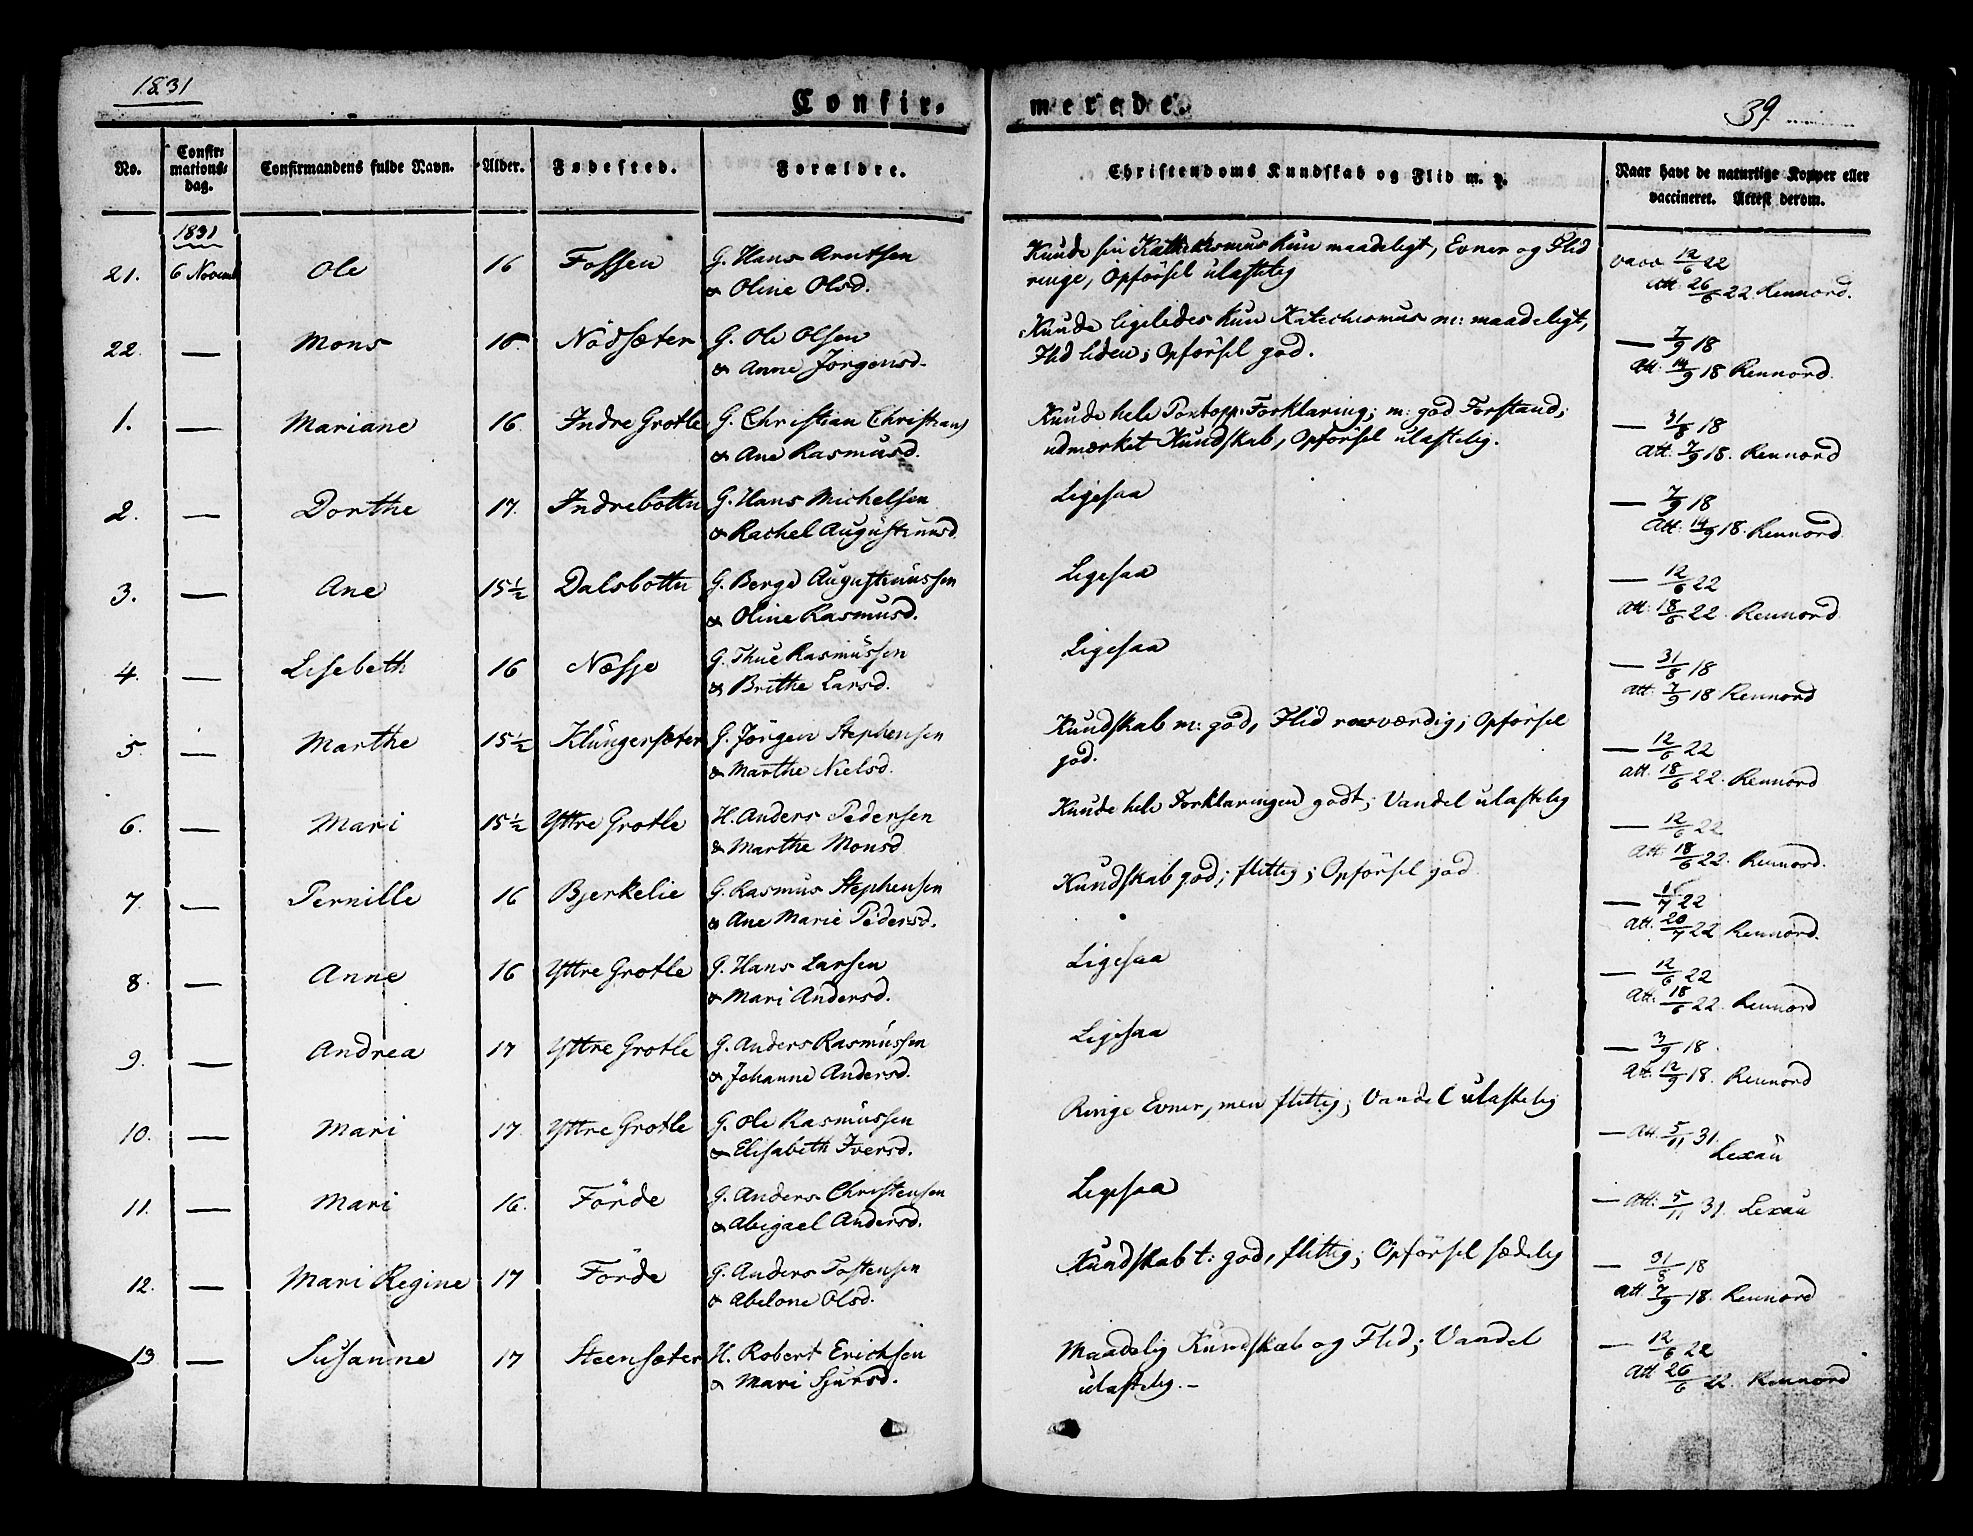 1831
Confir-
merede.
39
No.
Confir-
mations-
dag.
Confirmandens fulde Navn.
Alder.
Fødested.
Forældre.
Christendoms Kundskab og Flid m. v.
Naar havt de naturlige Kopper eller
vaccineret. Attest derom.
1831
21. 6 Novemb Ole 16 Fossen G. Hans Arntsen
& Oline Olsd.
Kunde sin Katekismus kun maadeligt, Evner og Flid
ringe, Opförsel ulastelig
vacc 12/6 22
Att. 26/6 22. Rennord.
22. — Mons 18 Nödsæter G. Ole Olsen
& Anne Jörgensd.
Kunde ligeledes kun Katechismus m: maadeligt,
Flid liden; Opförsel god.
— 7/9 18
Att. 14/9 18 Rennord.
1. — Mariane 16 Indre Grotle G. Christian Christians
& Ane Rasmusd.
Kunde hele Pontopp: Forklaring; m: god Forstand;
udmærket Kundskab, Opförsel ulastelig.
— 31/8 18
Att. 7/9 18. Rennord
2. — Dorthe 17. Indrebottn G. Hans Michelsen
& Rachel Augustinusd.
Ligesaa
— 7/9 18
Att. 14/9 18. Rennord.
3. — Ane 15½ Dalsbottn G. Berge Augustinussen
& Oline Rasmusd.
Ligesaa
— 12/6 22
Att. 18/6 22. Rennord.
4. — Lisebeth 16 Næsje G. Thue Rasmussen
& Brithe Larsd.
Ligesaa
— 31/8 18
Att. 7/9 18 Rennord
5. — Marthe 15½ Klungersæter G. Jörgen Stephensen
& Marthe Nielsd.
Kundskab m: god, Flid rosværdig; Opförsel
god.
— 12/6 22
Att. 18/6 22. Rennord
6. — Mari 15½ Yttre Grotle H. Anders Pedersen
& Marthe Monsd
Kunde hele Forklaringen godt; Vandel ulastelig
— 12/6 22
Att. 18/6 22. Rennord.
7. — Pernille 16 Bjerkelie G. Rasmus Stephensen
& Ane Marie Pedersd.
Kundskab god; flittig; Opförsel god
— /7 22
Att. 20/7 22 Rennord.
8. — Anne 16 Yttre Grotle G. Hans Larsen
& Mari Andersd.
Ligesaa
— 12/6 22
Att. 18/6 22. Rennord
9. — Andrea 17 Yttre Grotle G. Anders Rasmussen
& Johanne Andersd.
Ligesaa
— 3/9 18.
Att. 12/9 18. Rennord
10. — Mari 17. Yttre Grotle G. Ole Rasmussen
& Elisabeth Iversd.
Ringe Evner, men flittig; Vandel ulastelig
— Att. 5/11 31.
Lexau
11. — Mari 16. Förde G. Anders Christensen
& Abigael Andersd.
Ligesaa
— Att. 5/11 31. Lexau
12. — Mari Regine 17 Förde G. Anders Tostensen
& Abelone Olsd.
Kundskab t: god, flittig; Opförsel sædelig
— 31/8 18
Att 7/9 18. Rennord
13 — Susanne 17 Steensæter H. Robert Erichsen
& Mari Sjursd.
Maadelig Kundskab og Flid; Vandel
ulastelig. —
— 12/6 22
Att 26/6 22. Rennord